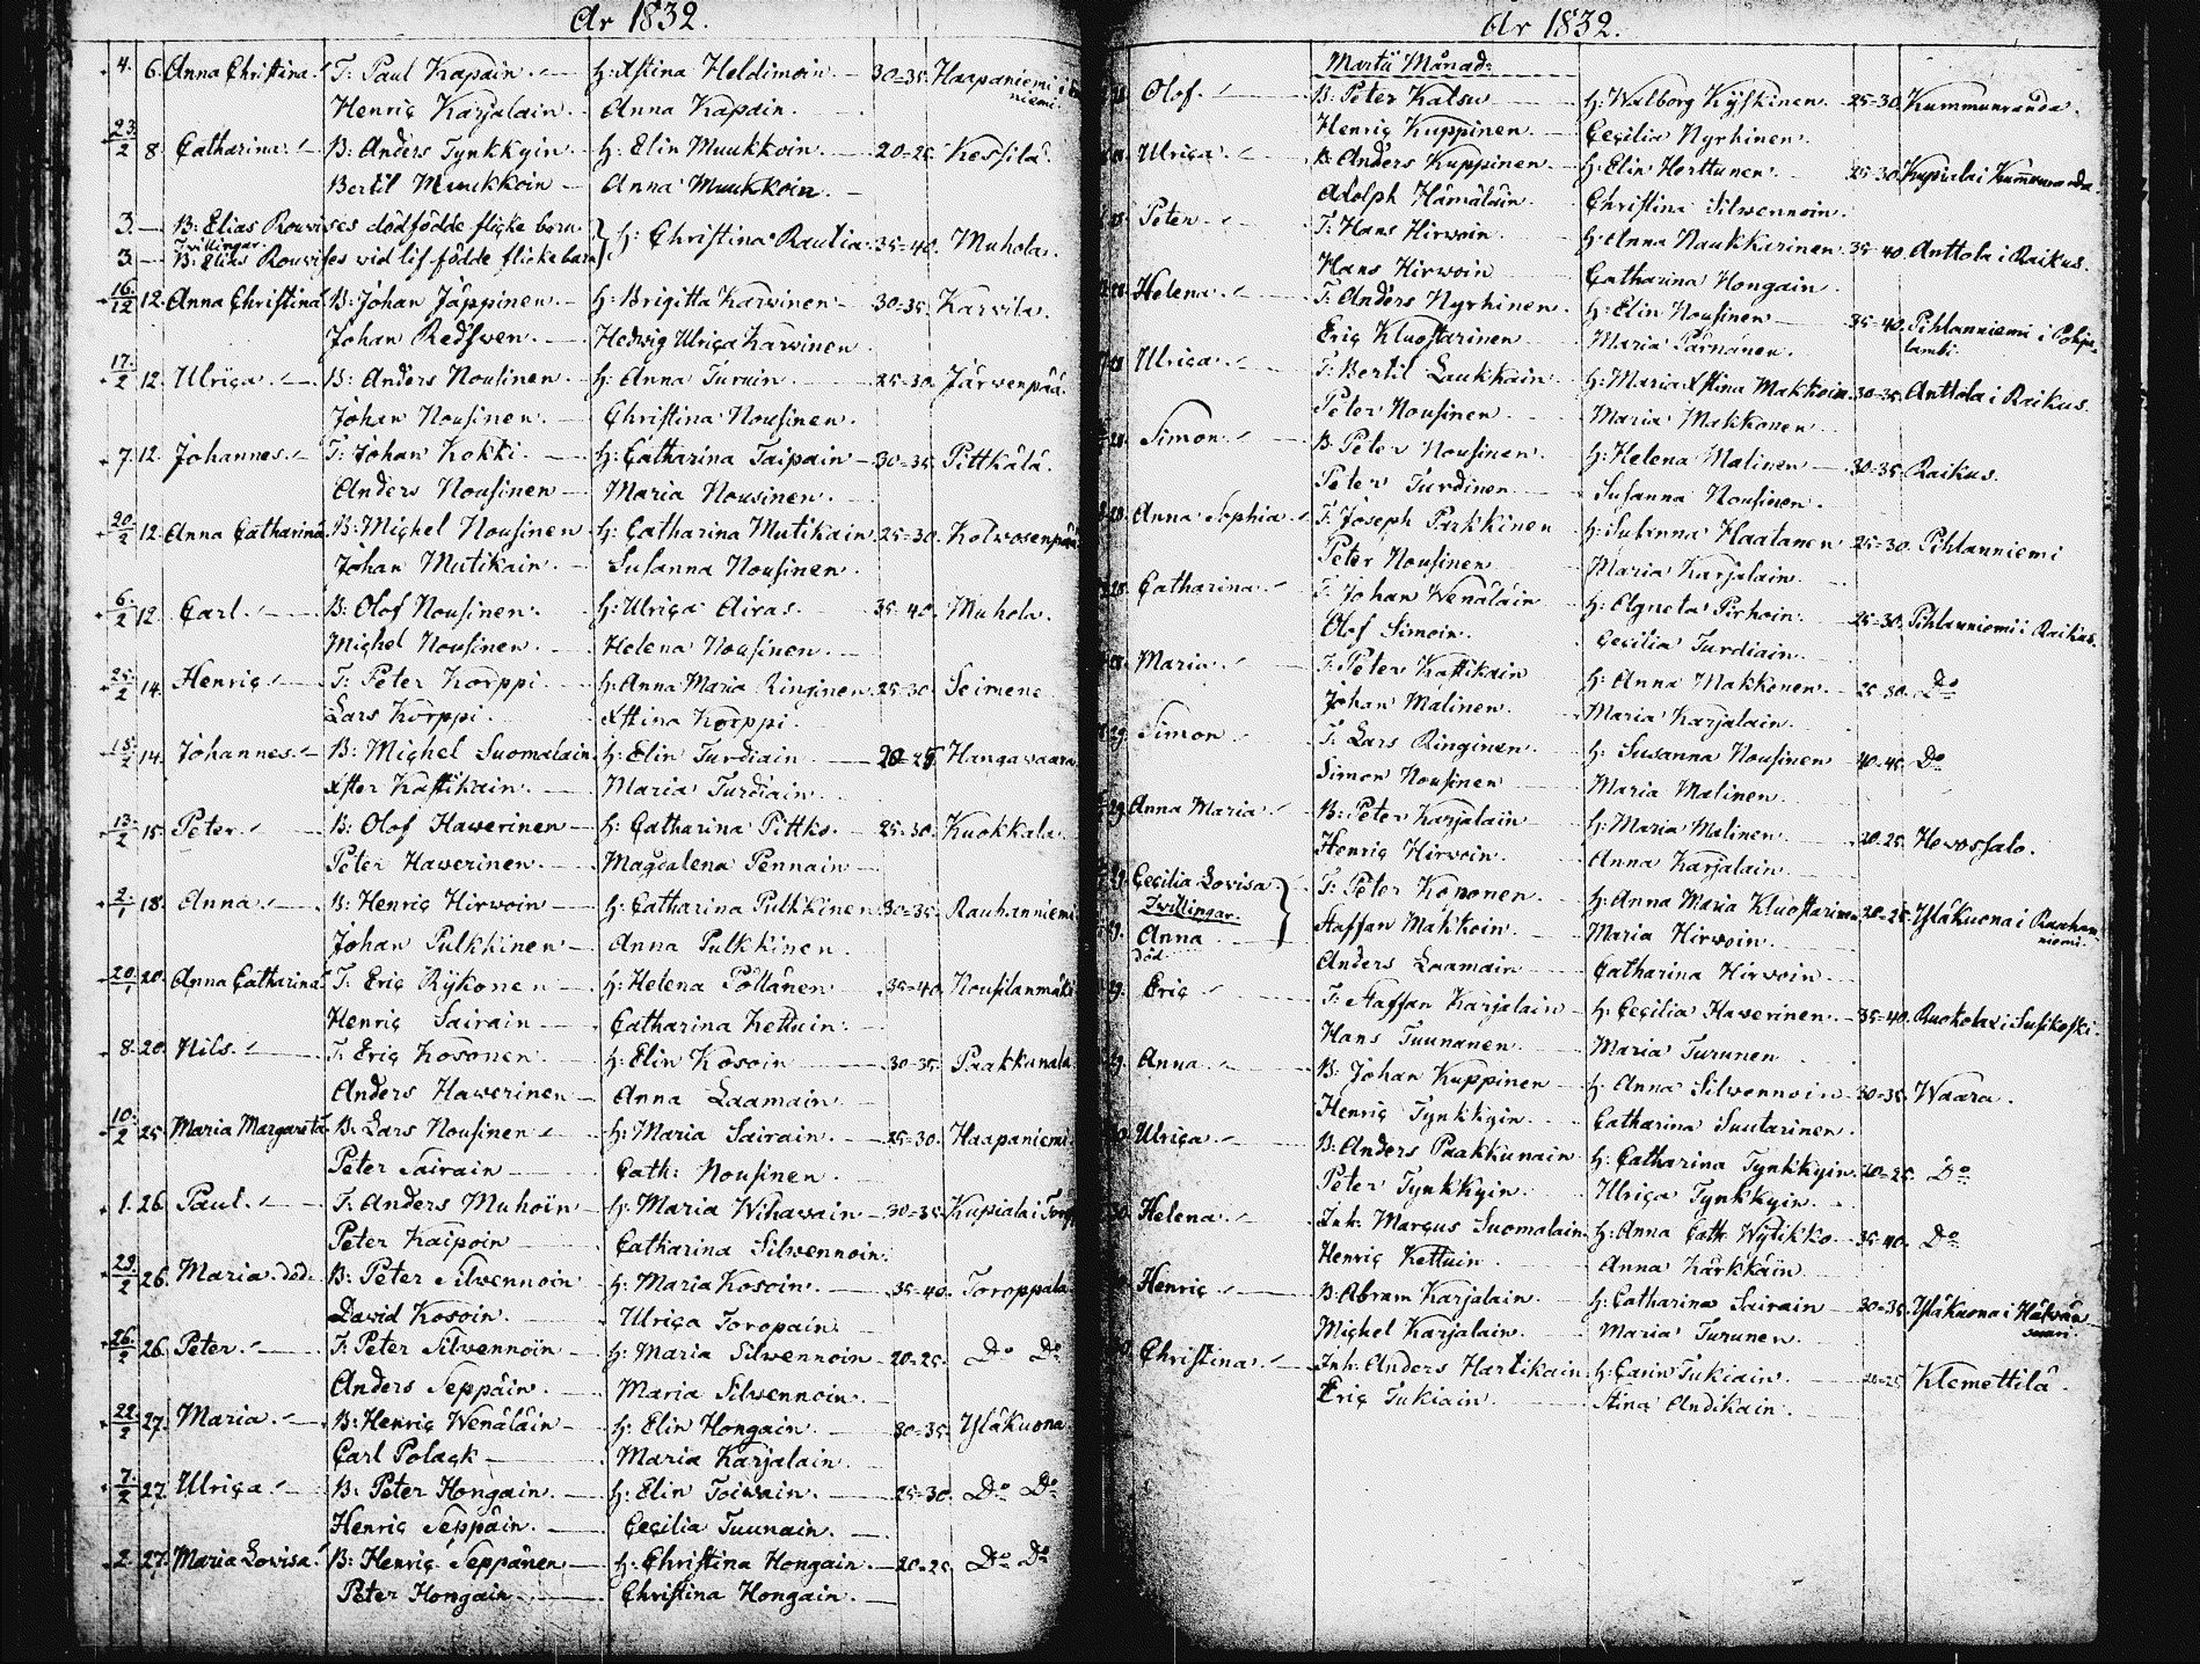 År 1832.
4. 6. Anna Christina. T: Paul Kapain. H: Xstina Heldimoin. 30=35. Haapaniemi i
niemi.
Henric Karjalain. Anna Kapain.
23/2 8. Catharina. B: Anders Tynkkyin. H: Elin Muukkoin. 20=25. Kessilä.
Bertil Muukkoin Anna Muukkoin.
3. B: Elias Rouvises dödfödde flicke barn H: Christina Rautia. 35=40. Muhola.
Tvillingar.
3. B: Elias Rouvises vid lif födde flicke barn
16/12 12. Anna Christina B: Johan Jäppinen. H: Brigitta Karvinen 30=35. Karvila.
Johan Redsven. Hedvig Ulrica Karvinen
17/2 12. Ulrica. B: Anders Nousinen. H: Anna Turuin. 25=30. Järvenpää.
Johan Nousinen. Christina Nousinen.
7. 12. Johannes. T: Johan Kokki. H: Catharina Taipain 30=35. Pittkälä.
Anders Nousinen Maria Nousinen.
20/2 12. Anna Catharina B: Michel Nousinen H: Catharina Mutikain 25=30. Kolvosenpää
Johan Mutikain. Susanna Nousinen.
6/2 12. Carl. B: Olof Nousinen. H: Ulrica Airas. 35=40. Muhola.
Michel Nousinen. Helena Nousinen.
25/2 14. Henric T: Peter Korppi H: Anna Maria Ringinen 25=30. Seimene
Lars Korppi. Xstina Korppi.
15/2 14. Johannes. B: Michel Suomalain. H: Elin Turdiain. 20=25. Hangavaara
Xster Kastikain. Maria Turdiain.
13/2 15. Peter. B: Olof Haverinen H: Catharina Pittko. 25=30. Kuokkala
Peter Haverinen. Magdalena Pennain
2/1 18. Anna. B: Henric Hirvoin H: Catharina Pulkkinen 30=35. Rauhaniemi
Johan Pulkkinen Anna Pulkkinen
20/1 20. Anna Catharina T: Eric Rÿkonen H: Helena Pöllänen 35=40. Nousilanmäki
Henric Sairain Catharina Kettuin.
8. 20. Nils. T: Eric Kosonen H: Elin Kosoin 30=35. Paakkunala
Anders Haverinen Anna Laamain
10/2 25. Maria Margareta B: Lars Nousinen H: Maria Sairain. 25=30. Haapaniemi
Peter Sairain Cath: Nousinen.
1. 26. Paul. T: Anders Muhoin H: Maria Wihavain 30=35. Kupiala i
Peter Kaipoin Catharina Silvennoin.
29/2 26. Maria. död. B: Peter Silvennoin H: Maria Kosoin. 35=40. Toroppala
David Kosoin. Ulrica Toropain.
26/2 26. Peter. T: Peter Silvennoin H: Maria Silvennoin 20=25. Do Do
Anders Seppäin. Maria Silvennoin.
22/2 27. Maria. B: Henric Wenäläin H: Elin Hongain 30=35. Yläkuona
Carl Polack Maria Karjalain.
7/2 27. Ulrica. B: Peter Hongain. H: Elin Toivain. 25=30. Do Do
Henric Seppäin. Cecilia Tuunain.
2. 27. Maria Lovisa. B: Henric Seppänen H: Christina Hongain. 20=25. Do Do
Peter Hongain Christina Hongain.
År 1832.
Martii Månad:
28. Olof. B: Peter Katsu H: Walborg Kÿskinen. 25=30. Kummunranda.
Henric Kuppinen. Cecilia Nyrhinen.
Ulrica. B: Anders Kuppinen H: Elin Herttunen. 25=30. Kupiala i Kummunranda.
Adolph Hämäläin. Christina Silvennoin.
28 Peter T: Hans Hirvoin H: Anna Naukkarinen. 35=40. Anttola i Raikus.
Hans Hirvoin Catharina Hongain.
28 Helena. T: Anders Nyrhinen. H: Elin Nousinen 35=40. Pihlanniemi i Pohja-
lambi.
Eric Kluostarinen Maria Pärnänen.
28 Ulrica. T: Bertil Laukkain H: Maria Xstina Makkoin. 30=35. Anttola i Raikus.
Peter Nousinen. Maria Makkonen
28. Simon. B: Peter Nousinen. H: Helena Malinen 30=35. Raikus.
Peter Turdinen. Susanna Nousinen.
28. Anna Sophia. T: Joseph Parkkinen H: Susanna Haatanen 25=30. Pihlanniemi
Peter Nousinen Maria Karjalain.
28. Catharina. T: Johan Wenäläin H: Agneta Pirhoin. 25=30. Pihlanniemi i Raikus.
Olof Simoin. Cecilia Turdiain.
28. Maria. T: Peter Kastikain H: Anna Makkonen. 25=30. Do
Johan Malinen. Maria Karjalain.
29. Simon T: Lars Ringinen. H: Susanna Nousinen 40=45. Do
Simon Nousinen Maria Malinen.
29. Anna Maria. B: Peter Karjalain H: Maria Malinen. 20=25. Hevossalo.
Henric Hirvoin. Anna Karjalain
29. Cecilia Lovisa T: Peter Kononen. H: Anna Maria Kluostarinen 20=25. Yläkuona i Rauhan-
niemi.
Tvillingar.
29. Anna Staffan Makkoin. Maria Hirvoin.
död. Anders Laamain Catharina Hirvoin
29. Eric T: Staffan Karjalain H: Cecilia Haverinen. 35=40. Ruokolax i Susikoski.
Hans Tuunanen. Maria Turunen
Anna. B: Johan Kuppinen H: Anna Silvennoin 30=35. Waara.
Henric Tynkkyin. Catharina Suutarinen.
30. Ulrica. B: Anders Paakkunain H: Catharina Tynkkyin. 20=25. Do
Peter Tynkkyin. Ulrica Tynkkyin.
30. Helena. Inh: Marcus Suomalain. H: Anna Cath: Wylikko 35=40. Do
Henric Kettuin. Anna Kärkkäin
Henric B: Abram Karjalain. H: Catharina Sairain 30=35. Yläkuona i
Michel Karjalain. Maria Turunen.
Christina. Inh: Anders Hartikain H: Carin Tukiain. 20=25 Klemettilä.
Eric Tukiain. Stina Andikain.